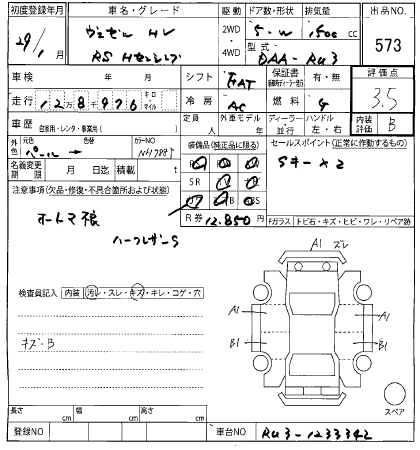 初度登録年月 車名・グレード 駆動 ドア数・形状 排気量 出品NO.
29/1月 ヴェゼル HV 2WD・4WD 5-W 1500cc 573
RS Hセンシング 型式 DAA-RU3
車検 年 月 シフト FAT 保証書 有・無 評価点
走行 12万8976 キロ マイル 冷房 AC 燃料 G 3.5
車歴 自家用・レンタ・事業用( ) 定員 人 外車モデル 年 ディーラー・並行 ハンドル 左・右 内装評価 B
外色 元色 パール → カラーNO NH788P 装備品(純正品に限る) セールスポイント(正常に作動するもの)
名義変更期限 月 日迄 積載 t SR Sキー×2
注意事項(欠品・修復・不具合箇所および状態)
オートマ
R券 12.850円
ハーフレザーS
Fガラス トビ石・キズ・ヒビ・ワレ・リペア跡
A1 ズレ
検査員記入 内装 汚レ・スレ・キズ・キレ・コゲ・穴
A1 A1
キズ・B B1 B1
スペア
長さ cm 幅 cm 高さ cm
登録NO 車台NO RU3-1233342